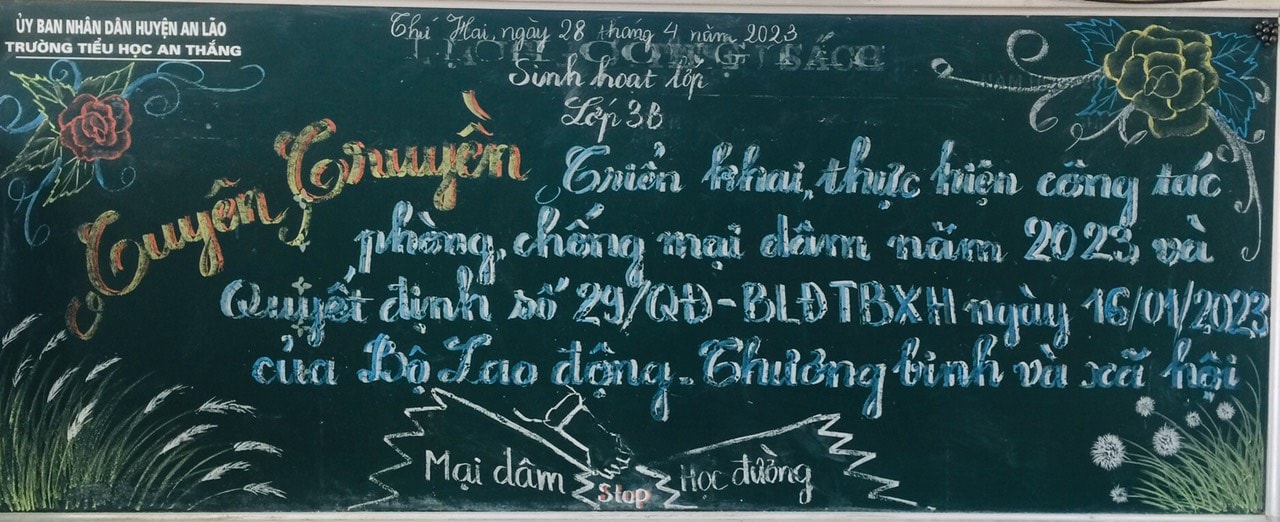 ỦY BAN NHÂN DÂN HUYỆN AN LÃO
TRƯỜNG TIỂU HỌC AN THẮNG
Thứ Hai, ngày 28 tháng 4 năm 2023
Sinh hoạt lớp
Lớp 3B
Tuyên Truyền
Triển khai, thực hiện công tác
phòng, chống mại dâm năm 2023 và
Quyết định số 29/QĐ-BLĐTBXH ngày 16/01/2023
của Bộ Lao động - Thương binh và xã hội
Mại dâm
Stop
Học đường